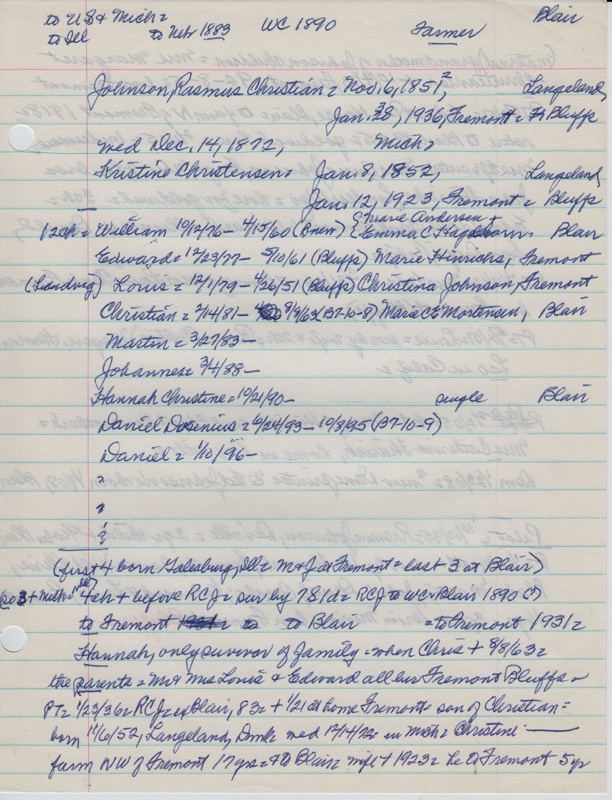 to US & Mich = Blair
to Ill to Nebr 1883 WC 1890 Farmer
Johnson, Rasmus Christian = Nov 16, 1851, 2 Langeland,
Jan. 1936, Fremont = Bluffs
wed Dec. 14, 1872, Mich =
Kristine Christensen = Jan. 8, 1852, Langeland,
Jan. 12, 1923, Fremont = Bluffs
12ch = William 10/12/76 - 4/15/60 (Brew) { Marie Andersen +
Emma C Blair
Edward = 12/23/77 - 5/10/61 (Bluffs) Marie Hinrichs, Fremont
(Ludvig) Louis = 12/1/79 - 4/26/51 (Bluffs) Christina Johnson, Fremont
Christian = 2/14/81 - 8/8/63 (B7-10-8) Marie C Mortensen, Blair
Martin = 3/27/83 -
Johannes = 3/4/88 -
Hannah Christine = 10/21/90 - single Blair
Daniel Dosenius = 6/24/93 - 10/8/95 (B7-10-9)
Daniel = 1/10/96 -
?
?
?
(first 4 born Galesburg, Ill = M & J at Fremont = last 3 at Blair)
4ch + before RCJ = sur by 7 & 1d = RCJ to WC = Blair 1890 (?)
to Fremont to Blair = to Fremont 1931 =
Hannah, only survivor of family = when Chris + 8/8/63 =
the parents = Mr & Mrs Louis & Edward all bur Fremont Bluffs
PT = 1/23/36 = RCJ = ex Blair, 83 = + 1/21 at home Fremont = son of Christian =
born 11/6/52, Langeland, Dmk = wed 12/14/72 in Mich = Christine
farm NW of Fremont 17 yrs = to Blair = wife + 1923 = he to Fremont 5 yr